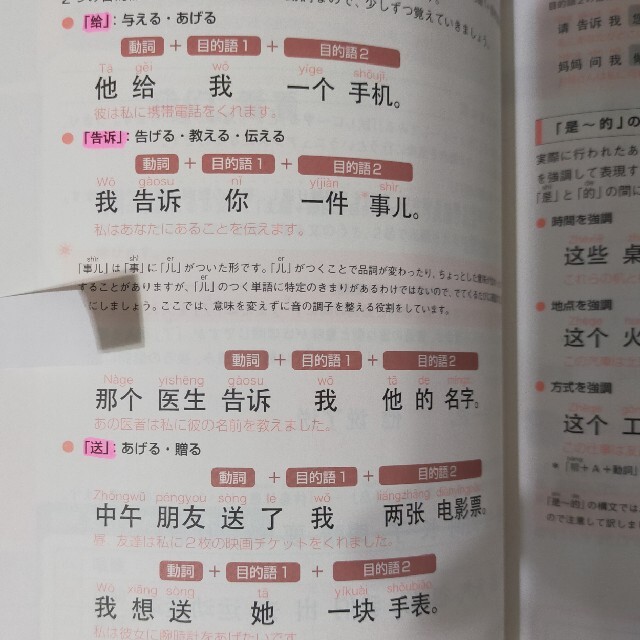 少しずつ覚えていきましょう。
●「给」: 与える・あげる
動詞 + 目的語1 + 目的語2
Tā gěi wǒ yíge shǒujī
他 给 我 一个 手机。
彼は私に携帯電話をくれます。
●「告诉」: 告げる・教える・伝える
動詞 + 目的語1 + 目的語2
Wǒ gàosu nǐ yíjiàn shìr
我 告诉 你 一件 事儿。
私はあなたにあることを伝えます。
shìr shì er
「事儿」は「事」に「儿」がついた形です。「儿」がつくことで品詞が変わったり、ちょっとした
することがありますが、「儿」のつく単語に特定のきまりがあるわけではないので、でてくるたびに
にしましょう。ここでは、意味を変えずに音の調子を整える役割をしています。
動詞 + 目的語1 + 目的語2
Nàge yīshēng gàosu wǒ tā de míngzi
那个 医生 告诉 我 他 的 名字。
あの医者は私に彼の名前を教えました。
●「送」: あげる・贈る
動詞 + 目的語1 + 目的語2
Zhōngwǔ péngyou sòng le wǒ liǎngzhāng diànyǐngpiào
中午 朋友 送 了 我 两张 电影票。
昼、友達は私に2枚の映画チケットをくれました。
動詞 + 目的語1 + 目的語2
Wǒ xiǎng sòng tā yíkuài shǒubiǎo
我 想 送 她 一块 手表。
私は彼女に腕時計をあげたいです。
请 告诉 我
妈妈 问 我
「是～的」の
実際に行われたあ
を強調して表現す
「是」と「的」の間に
●時間を強調
这些 桌
これらの机と
●地点を強調
这个 火
●方式を強調
这个 工
この仕事は
＋A＋動詞」
「是～的」の構文では
ので注意して訳しま